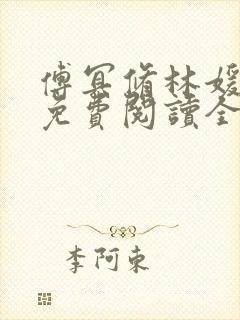 傅冥脩林媛
免費閱讀全
李阿東